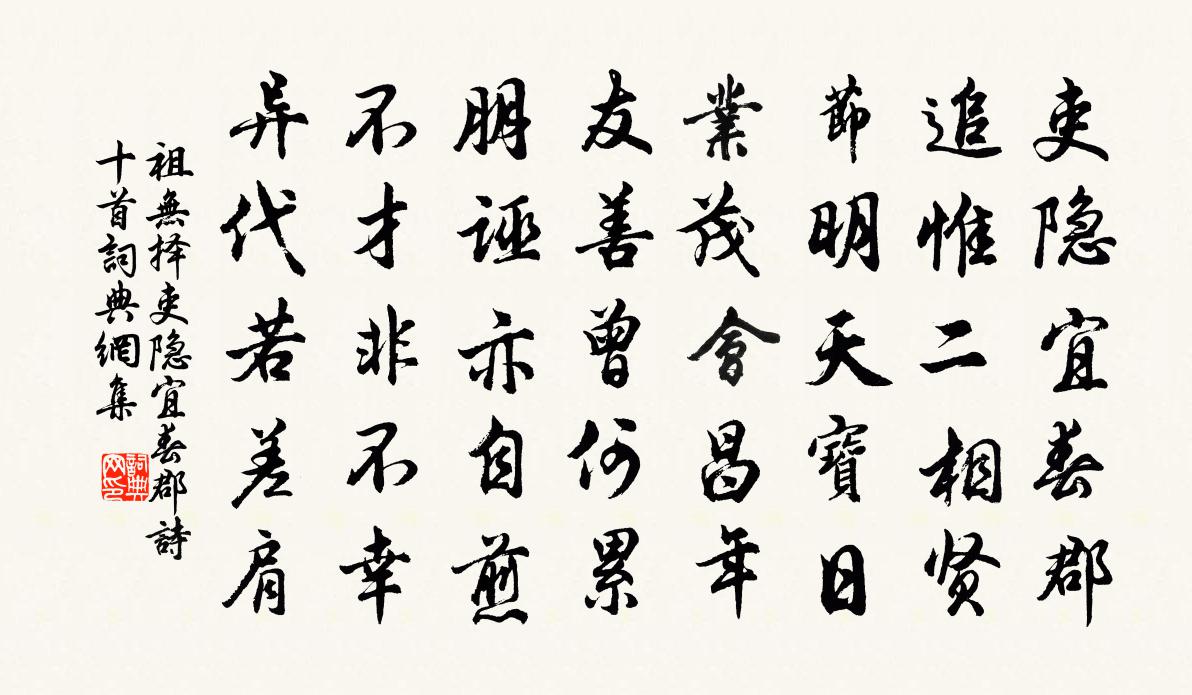 吏隐宜春郡
追惟二相贤
節明天寶日
業茂會昌年
友善曾何累
朋誣亦自煎
不才非不幸
异代若差肩
祖無择吏隐宜春郡詩
十首詞典網集
詞典网印